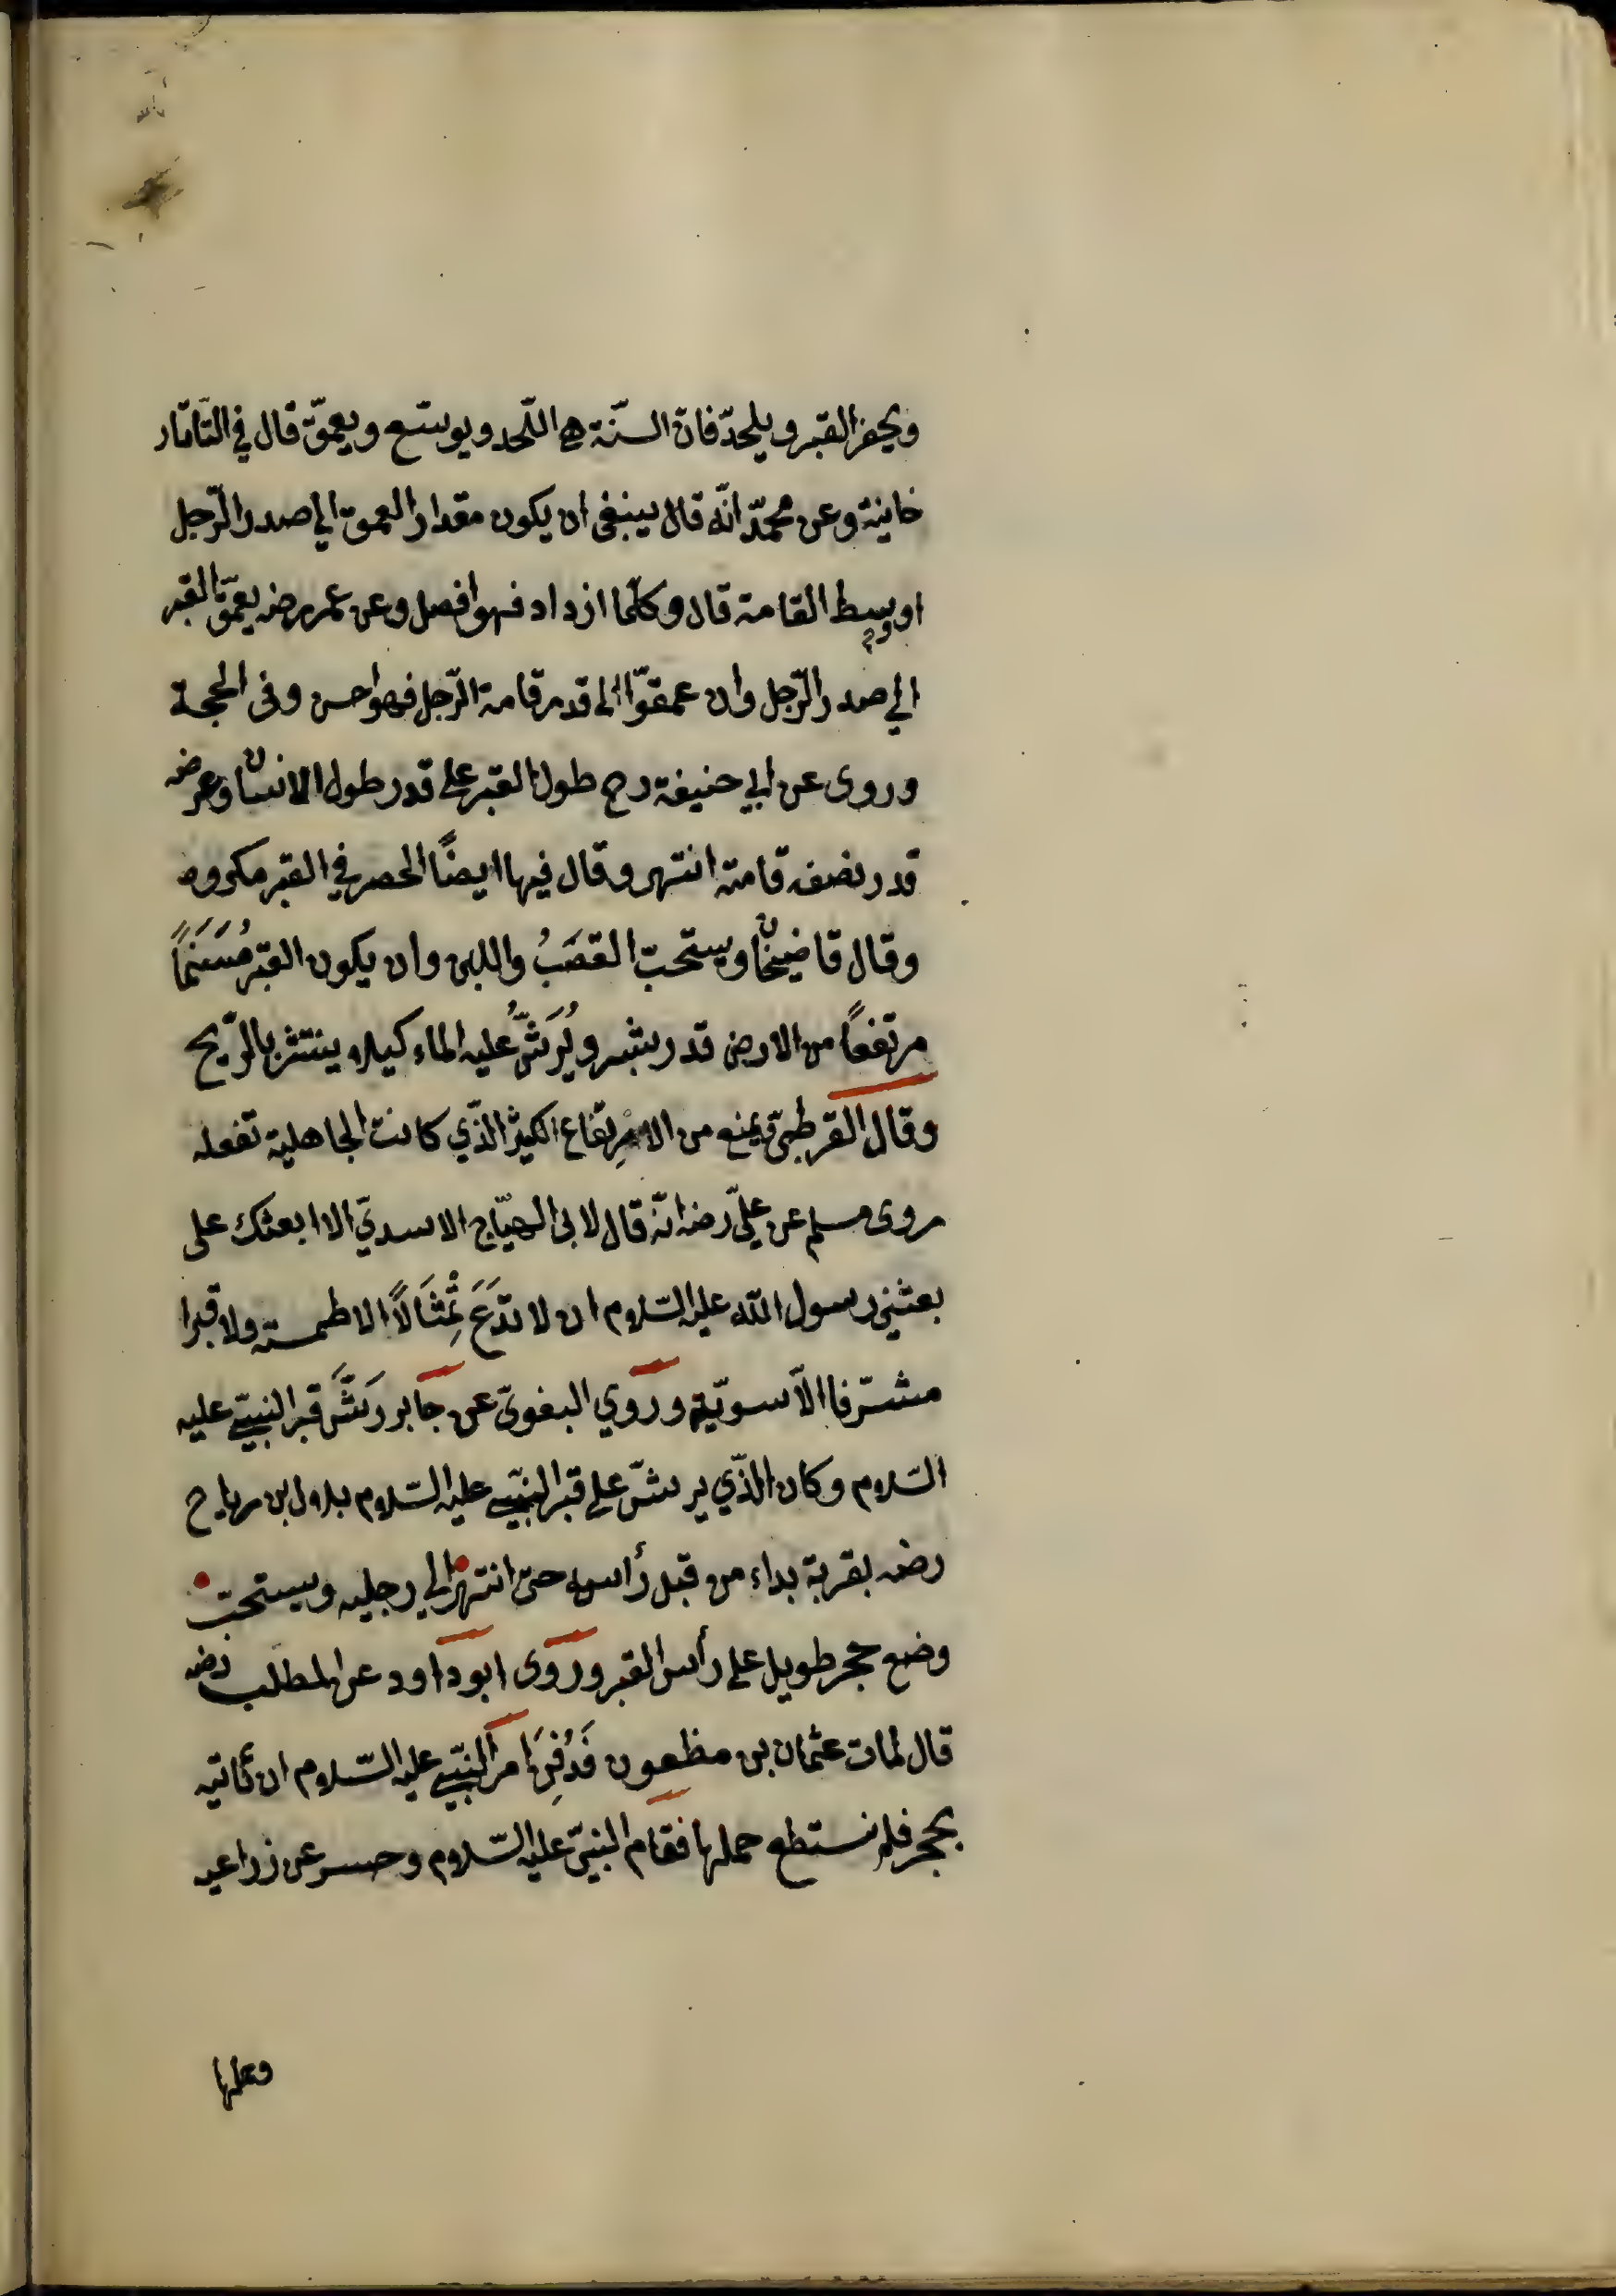 ويحفر القبر ويلحد فان السنّة هى اللّحد ويوسّع ويعمّق قال في التّاتار
خانية وعن محمدّ انّه قال ينبغى ان يكون مقدار العمق الي صدر الرّجل
او وسط القامة قال وكلّما ازداد فهو افضل وعن عمر رضه يعمّق القبر
الي صدر الرّجل وان عمقوّا الى قدر قامة الرّجل فهو احسن وفى الحجة
وروى عن ابي حنيفة رح طول القبر على قدر طول الانسان وعرضه
قدر نصف قامته انتهى وقال فيها ايضًا الحصر في القبر مكروه
وقال قاضيخان ويستحبّ القصَبُ واللبن وان يكون القبر مُسَنَّمًا
مرتفعًا من الارض قدر شبر ويُرَشُّ عليه الماء كيلا ينتثر بالرّيح
وقال القرطبىّ ويمنع من الارتفاع الكثير الذّي كانت الجاهلية تفعله
روى مسلم عن علىّ رضه انّه قال لابى الهيّاج الاسديّ الا ابعثك على
بعثني رسول اللّه عليه السّلام ان لا تدَعَ تِمْثَالًا الا طمسته ولا قبرا
مشرّفا الاّ سويّته وروي البغوىّ عن جابر رَشَّ قبر النبيّ عليه
السّلام وكان الذّي يرشّ على قبر النبيّ عليه السّلام بلال بن رباح
رضه بقربة بداء من قبل رأسه حتى انتهى الي رجليه ويستحبّ
وضع حجر طويل على رأس القبر وروى ابو داود عن المطلب رضه
قال لمات عثمان بن مظعون فَدُفِنَ امر النبيّ عليه السّلام ان نأتيه
بحجر فلم نستطع حملها فقام النبيّ عليه السّلام وحسر عن زراعيه
وحملها